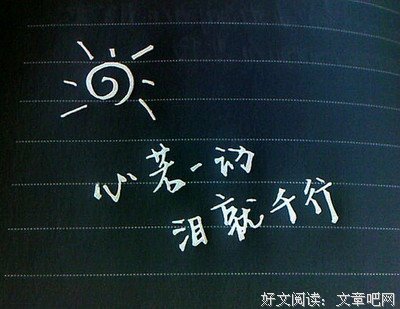 心若一动
泪就千行
好文阅读：文章吧网